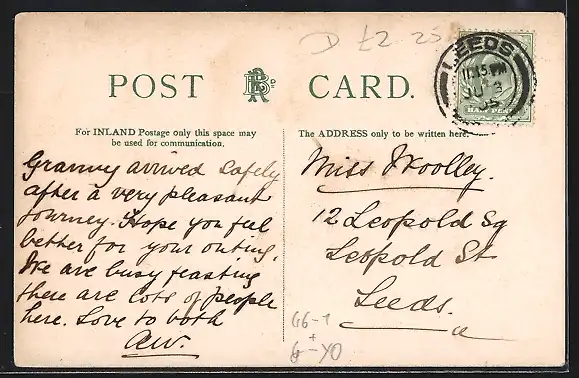 D £2 25
LEEDS
11.15 PM
JU 3
05
POST CARD.
For INLAND Postage only this space may
be used for communication.
The ADDRESS only to be written here.
Granny arrived safely
after a very pleasant
journey. Hope you feel
better for your outing.
We are busy feasting
there are lots of people
here. Love to both
AW.
Miss Woolley.
12 Leopold Sq
Leopold St
Leeds.